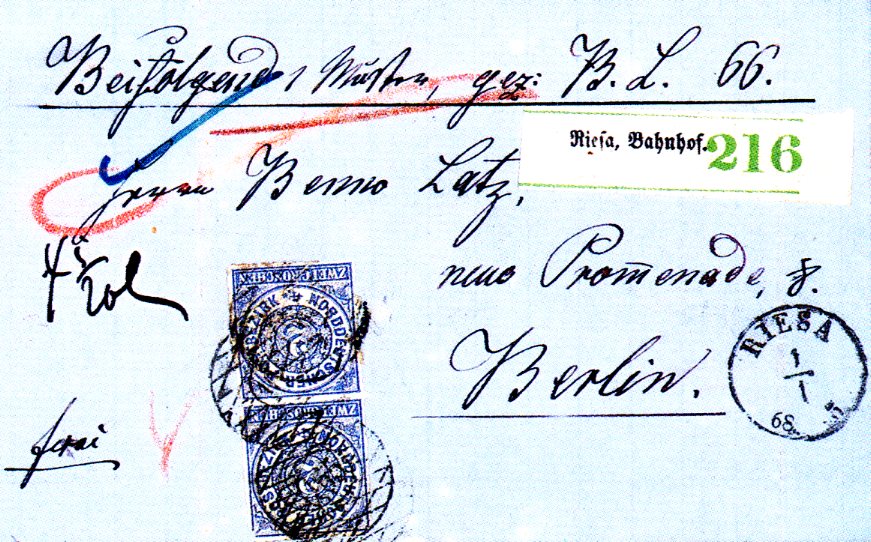 Beifolgend 1 Muster, gez: B. L. 66.
Riesa, Bahnhof. 216
Herrn Benno Latz,
neue Promenade, 8.
Berlin.
RIESA
1/1
68.
frei
ZWEI GROSCHEN
NORDDEUTSCHER POSTBEZIRK
ZWEI GROSCHEN
NORDDEUTSCHER POSTBEZIRK